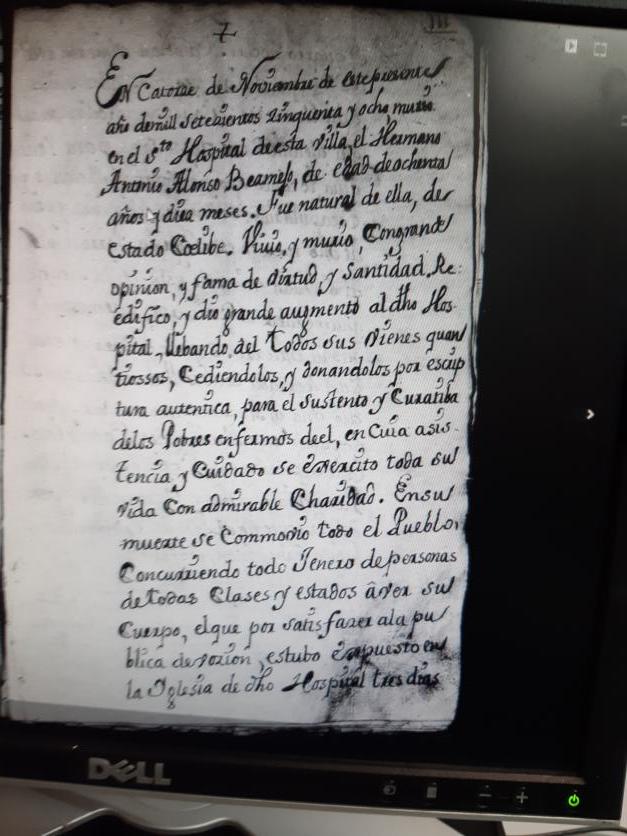 En Catorze de Noviembre de este presente
año demill setezientos zinquenta y ocho, murio
en el Sto Hospital de esta villa, el Hermano
Antonio Alonso Beamejo, de edad de ochenta
años y diez meses. Fue natural de ella, de
estado Coelibe. Vivio, y murio, Congrande
opinion, y fama de virtud, y Santidad. Re:
edifico, y dio grande augmento al dho Hos-
pital, llebando àel todos sus vienes quan
tiossos, Cediendolos, y donandolos por escrip
tura autentica, para el Sustento y Curatiba
delos Pobres enfermos deel, en Cuia asis-
tencia y Cuidado se exercito toda su
vida Con admirable Charidad. Ensu
muerte se Commovio todo el Pueblo,
Concurriendo todo Jenero de personas
de todas Clases y estados à ver su
Cuerpo, el que por satisfazer ala pu
blica devozion, estubo expuesto en
la Yglesia de dho Hospital tres dias
DELL